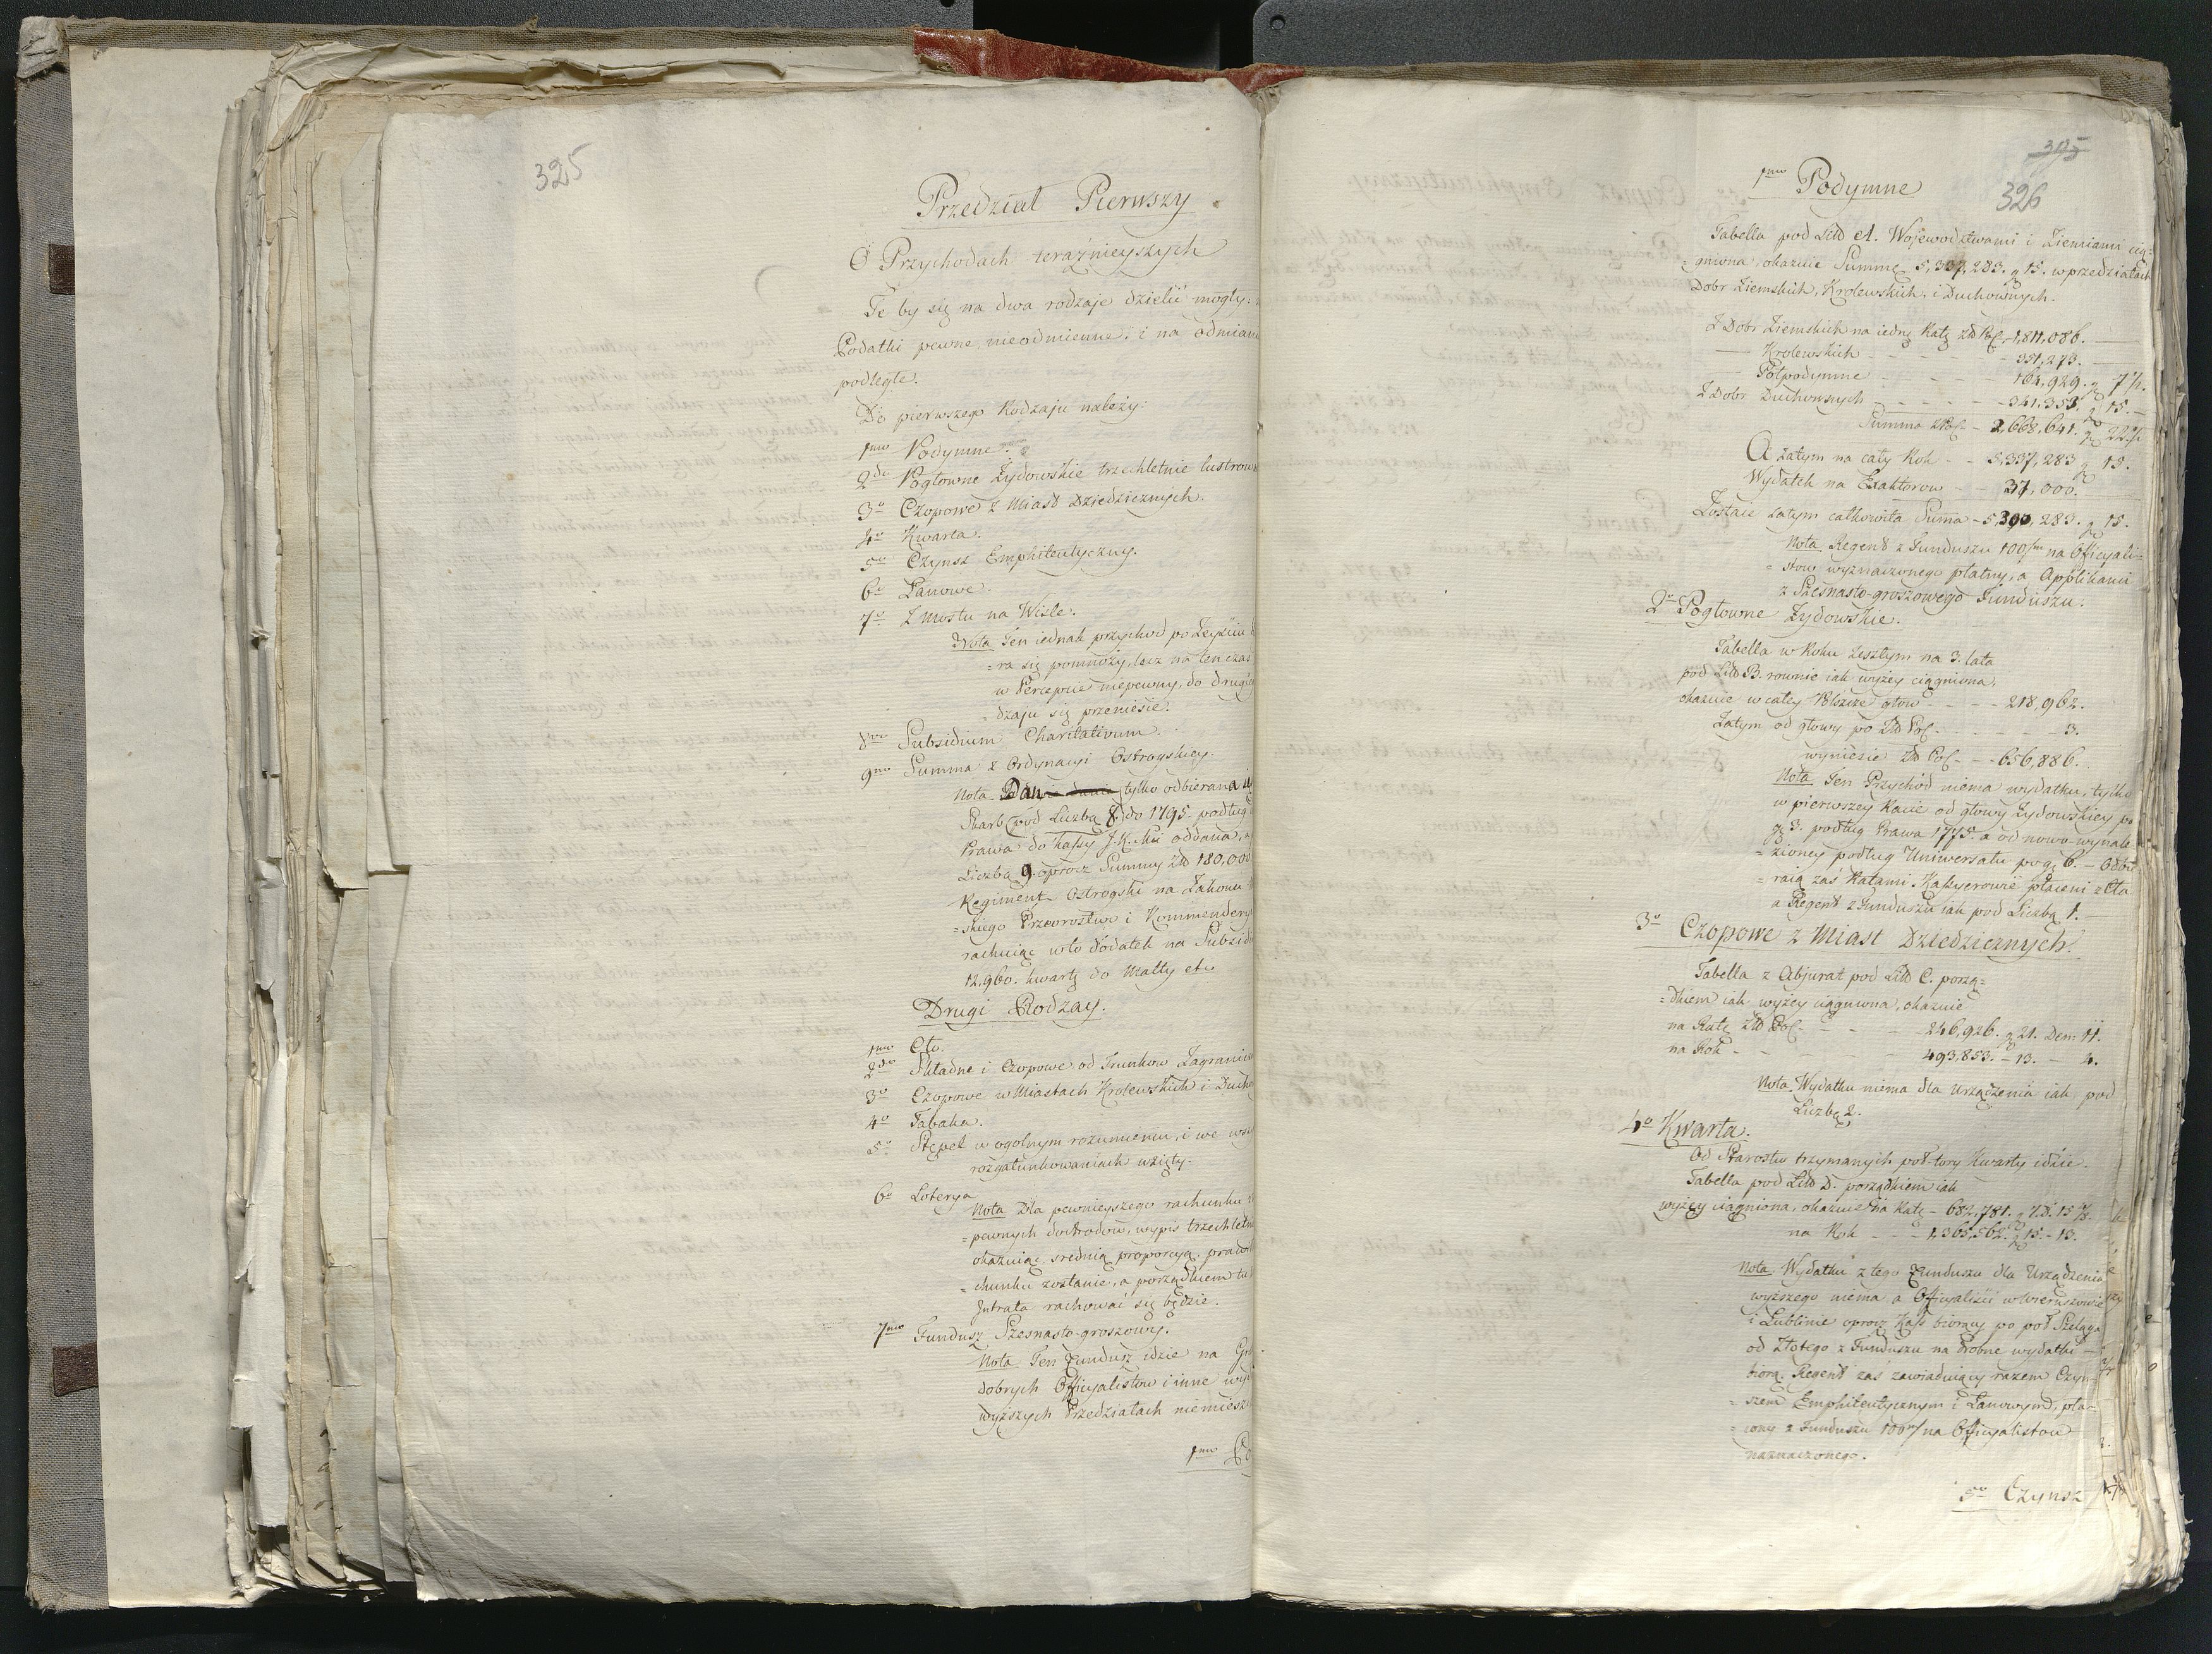 325
Przedział Pierwszy
O Przychodach teraźnieyszych
Te by się na dwa rodzaje dzielić mogły:
Podatki pewne, nieodmienne; i na odmian
podległe.
Do pierwszego Rodzaju należy:
1mo Podymne.
2do Pogłowne Żydowskie trzechletnie lustrow
3o Czopowe z Miast Dziedzicznych.
4o Kwarta.
5o Czynsz Emphiteutyczny.
6o Łanowe.
7o Z mostu na Wiśle.
Nota Ten iednak przychod po Zeyściu
=ra się pomnoży, lecz na ten czas
w Percepcie niepewny, do drugie
=dzaju się przeniesie.
8vo Subsidium Charitativum.
9no Summa z Ordynacyi Ostrogskiey.
Nota Dan tylko odbierana
Skarb (pod Liczbą 8.) do 1795. podług
Prawa do kassy J.K.Mci oddana,
Liczba 9. oprocz Summy Złł 180,000
Regiment Ostrogski na Zakonu
=skiego Przeorostwo i Kommendery
rachuiąc w to dodatek na Subsid
12,960. kwartę do Malty etc
Drugi Rodzay.
1mo Cło.
2do Składne i Czopowe od Trunkow Zagranic
3o Czopowe w Miastach Krolewskich i Duch
4o Tabaka.
5o Stępel w ogolnym rozumieniu, i we ws
rozgatunkowaniach wzięty.
6o Loterya
Nota Dla pewnieyszego rachunku
=pewnych dochodow, wypis trzechletn
okazuiąc srednią proporcyą, prawi
=chunku zostanie, a porządkiem tu
Jntrata rachować się będzie.
7mo Fundusz Szesnasto-groszowy.
Nota Ten Fundusz idzie na
dobrych Officyalistow i inne wy
wyższych Przedziałach niemiesz
1mo Po
315
326
1mo Podymne
Tabella pod Litt A. Woiewodztwami i Ziemiami cią=
=gniona, okazuie Summę 5,337,283. g 15. w przedziałach
Dobr Ziemskich, Krolewskich, i Duchownych.
Z Dobr Ziemskich na iedną Ratę Złł Pol. 1,811,086.
— Krolewskich - - - 351,273.
— Połpodymne - - - 164,929. g 7½.
Z Dobr Duchownych - - - 341,353. g 15.
Summa Złł Pol - 2,668,641. g 22½
A zatym na cały Rok - - 5,337,283 g 15.
Wydatek na Exaktorow - - 37,000.
Zostaie zatym całkowita Summa - 5,300,283. g 15.
Nota Regent z Funduszu 100/m na Officyali=
=stow wyznaczonego płatny, a Applikanci
z Szesnasto-groszowego Funduszu.
2o Pogłowne Żydowskie.
Tabella w Roku zeszłym na 3. lata
pod Litt B. rownie iak wyżey ciągniona,
okazuie w całey Polszcze głow - - - - 218,962.
Zatym od głowy po Złł Pol. - - - - 3.
wyniesie Złł Pol - - - 656,886.
Nota Ten Przychod niema wydatku, tylko
w pierwszey Racie od głowy Żydowskiey po
g 3. podług Prawa 1775. a od nowo-wynale=
=zioney podług Uniwersału po g. 6. — Odbie
=raią zaś Ratami Kassyerowie płaceni z Cła
a Regent z Funduszu iak pod Liczbą 1. —
3o Czopowe z Miast Dziedzicznych.
Tabella z Abjurat pod Litt C. porzą=
=dkiem iak wyżey ciągniona, okazuie
na Ratę Złł Pol. - - - 246,926. g 21. Den: 11.
na Rok - - - - 493,853. - 13. - 4.
Nota Wydatku niema dla Urządzenia iak pod
Liczbą 2.
4o Kwarta.
Od Starostw trzymanych poł-tory Kwarty idzie.
Tabella pod Litt D. porządkiem iak
wyżey ciągniona, okazuie na Ratę - 682,781. g 7. d. 15½.
na Rok - - - 1,365,562. g 15. - 13.
Nota Wydatku z tego Funduszu dla Urządzenia
wyższego niema a Officyaliści w Wieruszowie
i Lublinie oprocz Kass biorący po poł Szeląga
od Złotego z Funduszu na drobne wydatki —
biorą. Regent zaś zawiaduiący razem Czyn=
=szem Emphiteutycznym i Łanowym, pła=
=cony z Funduszu 100/m na Officyalistow
naznaczonego.
5o Czynsz